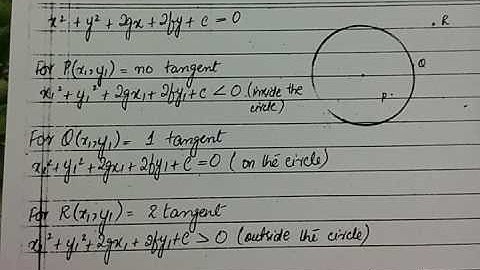 x² + y² + 2gx + 2fy + c = 0
R
Q
P.
For P(x₁,y₁) = no tangent
x₁² + y₁² + 2gx₁ + 2fy₁ + c < 0 (inside the circle)
For Q(x₁,y₁) = 1 tangent
x₁² + y₁² + 2gx₁ + 2fy₁ + c = 0 (on the circle)
For R(x₁,y₁) = 2 tangent
x₁² + y₁² + 2gx₁ + 2fy₁ + c > 0 (outside the circle)